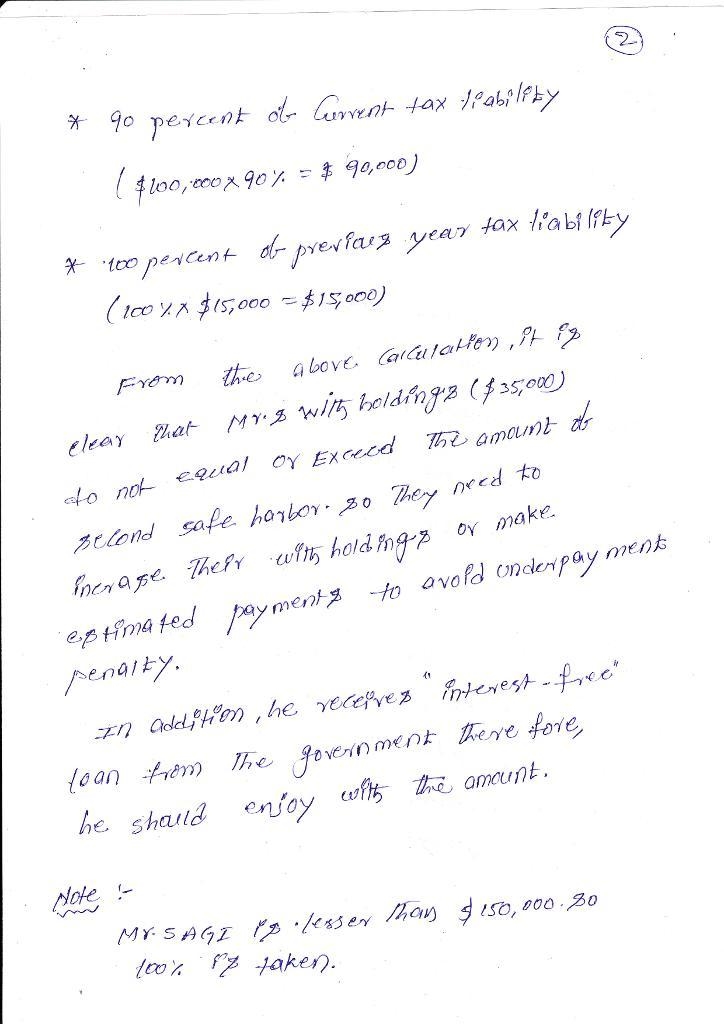 2
* 90 percent of Current tax liability
( $100,000 x 90% = $ 90,000)
* 100 percent of previous year tax liability
(100% x $15,000 = $15,000)
From the above calculation, it is
clear that Mr.S withholdings ($35,000)
do not equal or Exceed The amount of
second safe harbor. so They need to
increase Their withholdings or make
estimated payments to avoid underpayment
penalty.
In addition, he receives "interest-free"
loan from The government there fore,
he should enjoy with the amount.
Note :-
Mr. S AGI is lesser than $150,000. So
100% is taken.